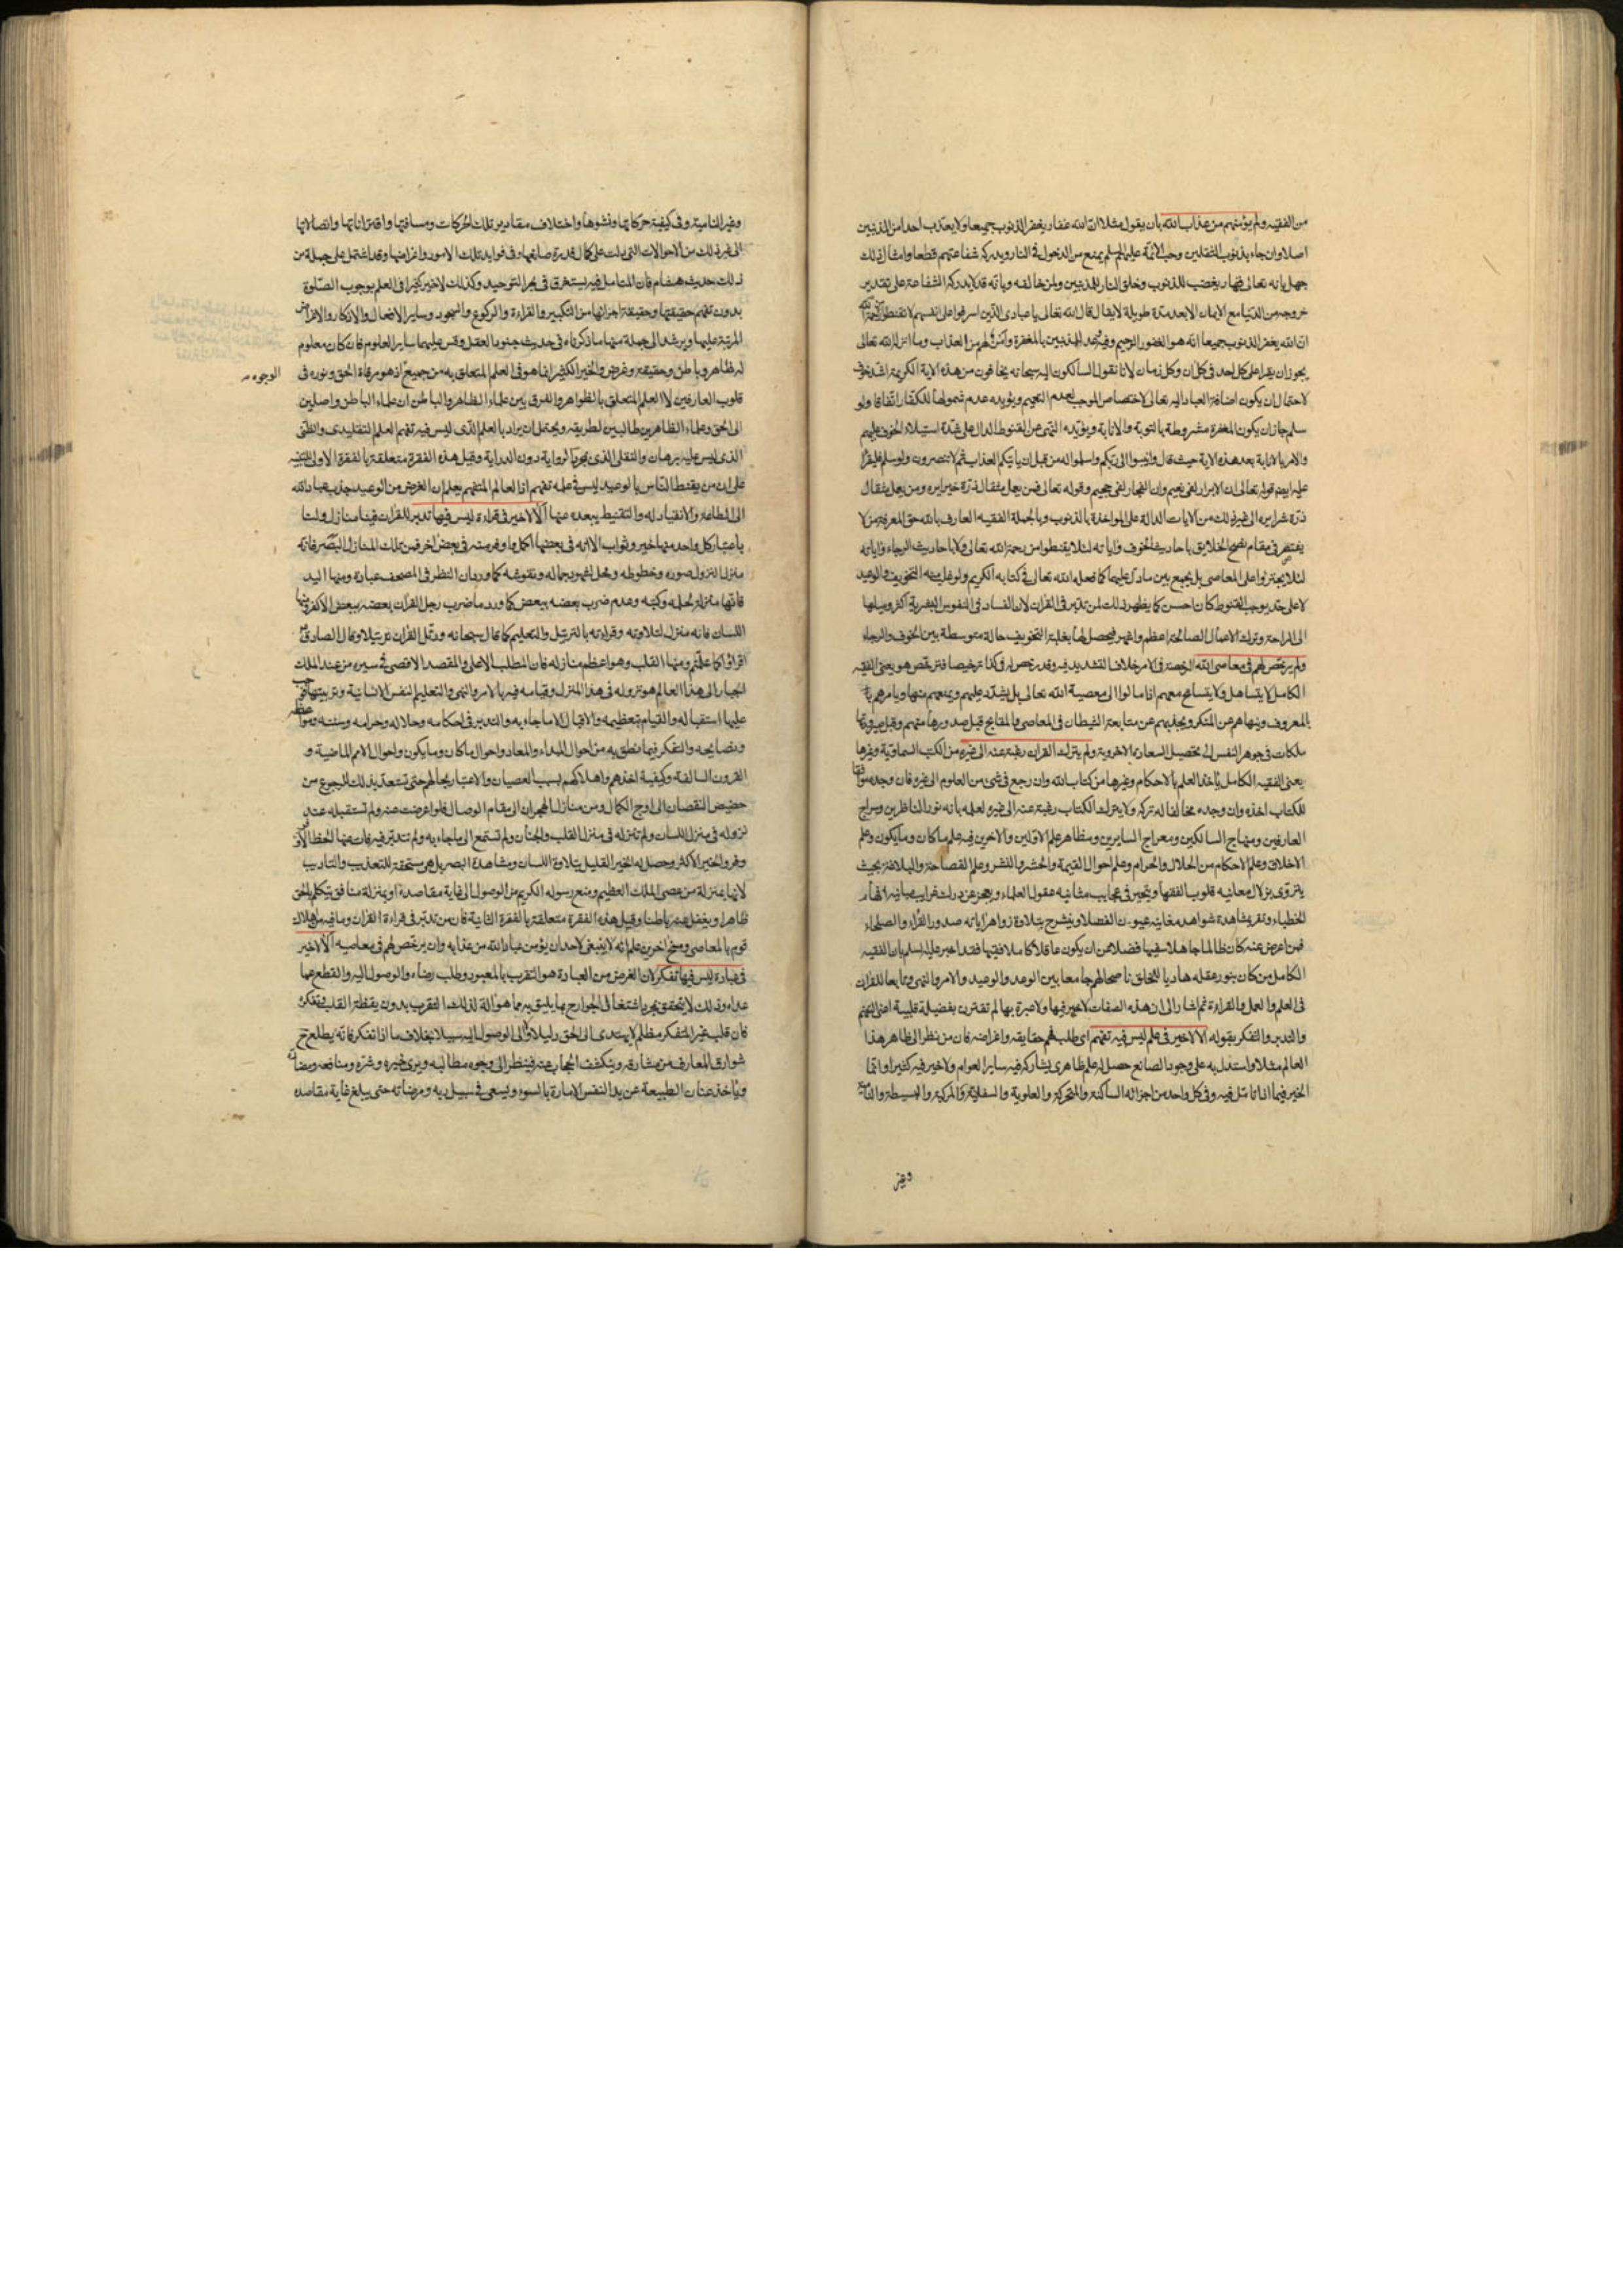 من الفقيه ولم يؤمنهم من عذاب الله بان يقول مثلا ان الله غفار يغفر الذنوب جميعا ولا يعذب احدا من المذنبين
اصلا وان جاء بذنوب الثقلين وحب الائمة عليهم السلم يمنع من الدخول في النار ويدركه شفاعتهم قطعا وامثال ذلك
جهل بانه تعالى قهار يغضب للذنوب وخلق النار للمذنبين ولمن خالفه وبانه قد لا يدركه الشفاعة على تقدير
خروجه من الدنيا مع الايمان الا بعد مدة طويلة لا يقال قال الله تعالى يا عبادي الذين اسرفوا على انفسهم لا تقنطوا من رحمة الله
ان الله يغفر الذنوب جميعا انه هو الغفور الرحيم وفيه وعد المذنبين بالمغفرة وامن لهم من العذاب وما انزل الله تعالى
يجوز ان يقرا على كل احد في كل ان وكل زمان لانا نقول السالكون اليه سبحانه يخافون من هذه الاية الكريمة اشد خوف
لاحتمال ان يكون اضافة العباد اليه تعالى لاختصاص الموجب لعدم التعميم ويؤيده عدم شمولها للكفار اتفاقا ولو
سلم جاز ان يكون المغفرة مشروطة بالتوبة والانابة ويؤيده النهى عن القنوط الدال على شدة استيلاء الخوف عليهم
والامر بالانابة بعد هذه الاية حيث قال وانيبوا الى ربكم واسلموا له من قبل ان ياتيكم العذاب ثم لا تنصرون ولو سلم فليقرا
عليه ايضا قوله تعالى ان الابرار لفي نعيم وان الفجار لفي جحيم وقوله تعالى فمن يعمل مثقال ذرة خيرا يره ومن يعمل مثقال
ذرة شرا يره الى غير ذلك من الايات الدالة على المواخذة بالذنوب وبالجملة الفقيه العارف بالله حق المعرفة من لا
يقتصر في مقام نصح الخلايق باحاديث الخوف واياته لئلا يقنطوا من رحمة الله تعالى ولا باحاديث الرجاء واياته
لئلا يجتروا على المعاصى بل يجمع بين ما دل عليهما كما فعله الله تعالى في كتابه الكريم ولو غلب منه التخويف والوعيد
لا على حد يوجب القنوط كان احسن كما يظهر ذلك لمن تدبر في القران لان الفساد في النفوس البشرية اكثر وميلها
الى الراحة وترك الاعمال الصالحة اعظم واشهر فيحصل لها بغلبة التخويف حالة متوسطة بين الخوف والرجاء
ولم يرخص لهم في معاصى الله الرخصة في الامر خلاف التشديد فيه وقد رخص له في كذا ترخيصا فترخص هو يعنى الفقيه
الكامل لا يتساهل ولا يتسامح معهم اذا مالوا الى معصية الله تعالى بل يشدد عليهم ويمنعهم منها ويامرهم
بالمعروف وينهاهم عن المنكر ويجذبهم عن متابعة الشيطان في المعاصى والمقابح قبل صدورها منهم وقبل صيرورتها
ملكات في جوهر النفس الى تحصيل السعادة الاخروية ولم يترك القران رغبة عنه الى غيره من الكتب السماوية وغيرها
يعنى الفقيه الكامل ياخذ العلم بالاحكام وغيرها من كتاب الله وان رجع في شئ من العلوم الى غيره فان وجده موافقا
للكتاب اخذه وان وجده مخالفا له تركه ولا يترك الكتاب رغبة عنه الى غيره لعلمه بانه نور الناظرين وسراج
العارفين ومنهاج السالكين ومعراج السايرين ومظاهر علم الاولين والاخرين فيه علم ما كان وما يكون وعلم
الاخلاق وعلم الاحكام من الحلال والحرام وعلم احوال القيمة والحشر والنشر وعلم الفصاحة والبلاغة بحيث
يتروى بزلال معانيه قلوب الفقها ويتحير في عجايب مثانيه عقول العلماء ويعجز عن درك غرايب مبانيه افهام
الخطباء وتقر بمشاهدة شواهد مغانيه عيون الفضلا وينشرح بتلاوة زواهر اياته صدور القراء والصلحاء
فمن اعرض عنه كان ظالما جاهلا سفيها فضلا عن ان يكون عاقلا كاملا فقيها فقد اخبر عليه السلم بان الفقيه
الكامل من كان بنور عقله هاديا للخلق ناصحا لهم جامعا بين الوعد والوعيد والامر والنهى وتابعا للقران
في العلم والعمل والقراءة ثم اشار الى ان هذه الصفات لا خير فيها ولا عبرة بها لم تقترن بفضيلة قلبية اعنى التفهم
والتدبر والتفكر بقوله الا لا خير في علم ليس فيه تفهم اى طلب فهم حقايقه واغراضه فان من نظر الى ظاهر هذا
العالم مثلا واستدل به على وجود الصانع حصل له علم ظاهرى يشاركه فيه ساير العوام ولا خير فيه كثيرا وانما
الخير فيما اذا تامل فيه وفي كل واحد من اجزائه الساكنة والمتحركة والعلوية والسفلية والمركبة والبسيطة والنامية
وغير
وغير النامية وفي كيفية حركاتها ونشوها واختلاف مقادير تلك الحركات ومسافتها واقتراناتها واتصالاتها
الى غير ذلك من الاحوالات التى دلت على كمال قدرة صانعها وفى فوايد تلك الامور واغراضها وقد اشتمل على جملة من
ذلك حديث هشام فان المتامل فيه يستغرق في بحر التوحيد وكذلك لا خير كثيرا في العلم بوجوب الصلوة
بدون تفهم حقيقتها وحقيقة اجزائها من التكبير والقراءة والركوع والسجود وساير الافعال والاذكار والاغراض
المرتبة عليها ويرشد الى جملة منها ما ذكرناه في حديث جنود العقل وقس عليهما ساير العلوم فان كان معلوم
له ظاهر وباطن وحقيقة وغرض والخير الكثير انما هو في العلم المتعلق به من جميع اذ هو مرقاة الحق ونوره في
الوجوه
قلوب العارفين لا العلم المتعلق بالظواهر والفرق بين علماء الظاهر والباطن ان علماء الباطن واصلين
الى الحق وعلماء الظاهرين طالبين لطريقه ويحتمل ان يراد بالعلم الذى ليس فيه تفهم العلم التقليدى والظنى
الذى ليس عليه برهان والنقلى الذى مجرد الرواية دون الدراية وقيل هذه الفقرة متعلقة بالفقرة الاولى
على ان من يقنط الناس بالوعيد ليس في علمه تفهم اذ العالم المتفهم يعلم ان الغرض من الوعيد جذب عباد الله
الى الطاعة والانقياد له والتقنيط يبعده عنها الا لا خير في قراءة ليس فيها تدبر للقران فينا منازل ولنا
باعتبار كل واحد منها خير وثواب الا انه في بعضها اكمل واوفر منه في بعض اخر فمن تلك المنازل البصر فانه
منزل لنزول صوره وخطوطه ومحل لشهود جماله ونقوشه كما ورد ان النظر في المصحف عبادة ومنها اليد
فانها منزله لحمله وكتبه وعدم ضرب بعضه ببعض كما ورد ما ضرب رجل القران بعضه ببعض الا كفر ومنها
اللسان فانه منزل لتلاوته وقراءته بالترتيل والتعليم كما قال سبحانه ورتل القران ترتيلا وقال الصادق
اقراؤا كما علمتم ومنها القلب وهو اعظم منازله فان المطلب الاعلى والمقصد الاقصى في سيره من عند الملك
الجبار الى هذا العالم هو نزوله في هذا المنزل وقيامه فيه بالامر والنهى والتعليم لنفس الانسانية وتربيتها
عليها استقبا له والقيام بتعظيمه والاقبال الى ما جاء به والتدبر في احكامه وحلاله وحرامه وسننه
ونصايحه والتفكر فيما نطق به من احوال المبداء والمعاد واحوال ما كان وما يكون واحوال الامم الماضية و
القرون السالفة وكيفية اخذهم واهلاكهم بسبب العصيان والاعتبار بحالهم حتى تستعد بذلك للرجوع من
حضيض النقصان الى اوج الكمال ومن منازل الهجران الى مقام الوصال فلو اعرضت عنه ولم تستقبله عند
نزوله في منزل اللسان ولم تنزله في منزل القلب والجنان ولم تستمع الى ما جاء به ولم تتدبر فيه فات منها الحظ الاوفر
وفر والخير الاكثر وحصل له الخير القليل بتلاوة اللسان ومشاهدة البصر بل هو مستحقة للتعذيب والتاديب
لانها بمنزلة من عصى الملك العظيم ومنع رسوله الكريم من الوصول الى غاية مقاصده او بمنزلة منافق يتكلم بالحق
ظاهرا ويغفل عنه باطنا وقيل هذه الفقرة متعلقة بالفقرة الثانية فان من تدبر في قراءة القران وما فيه من هلاك
قوم بالمعاصى ومسخ اخرين علم انه لا ينبغى لاحد ان يؤمن عباد الله من عذابه وان يرخص لهم في معاصيه الا لا خير
في عبادة ليس فيها تفكر لان الغرض من العبادة هو التقرب بالمعبود وطلب رضاه والوصول اليه والقطع عما
عداه وذلك لا يتحقق بمجرد اشتغال الجوارح بما يليق بها هو الة لذلك التقرب بدون يقظة القلب وتفكره
فان قلب غير المتفكر مظلم لا يهتدى الى الحق دليلا ولا الى الوصول اليه سبيلا بخلاف ما اذا تفكر فانه يطلع ح
شوارق المعارف من مشارقه وينكشف الحجاب عنه فينظر الى وجوه مطالبه ويرى خيره وشره ومنافعه ومضاره
وياخذ عنان الطبيعة عن يد النفس الامارة بالسوء ويسعى في سبيل ربه ومرضاته حتى يبلغ غاية مقاصده